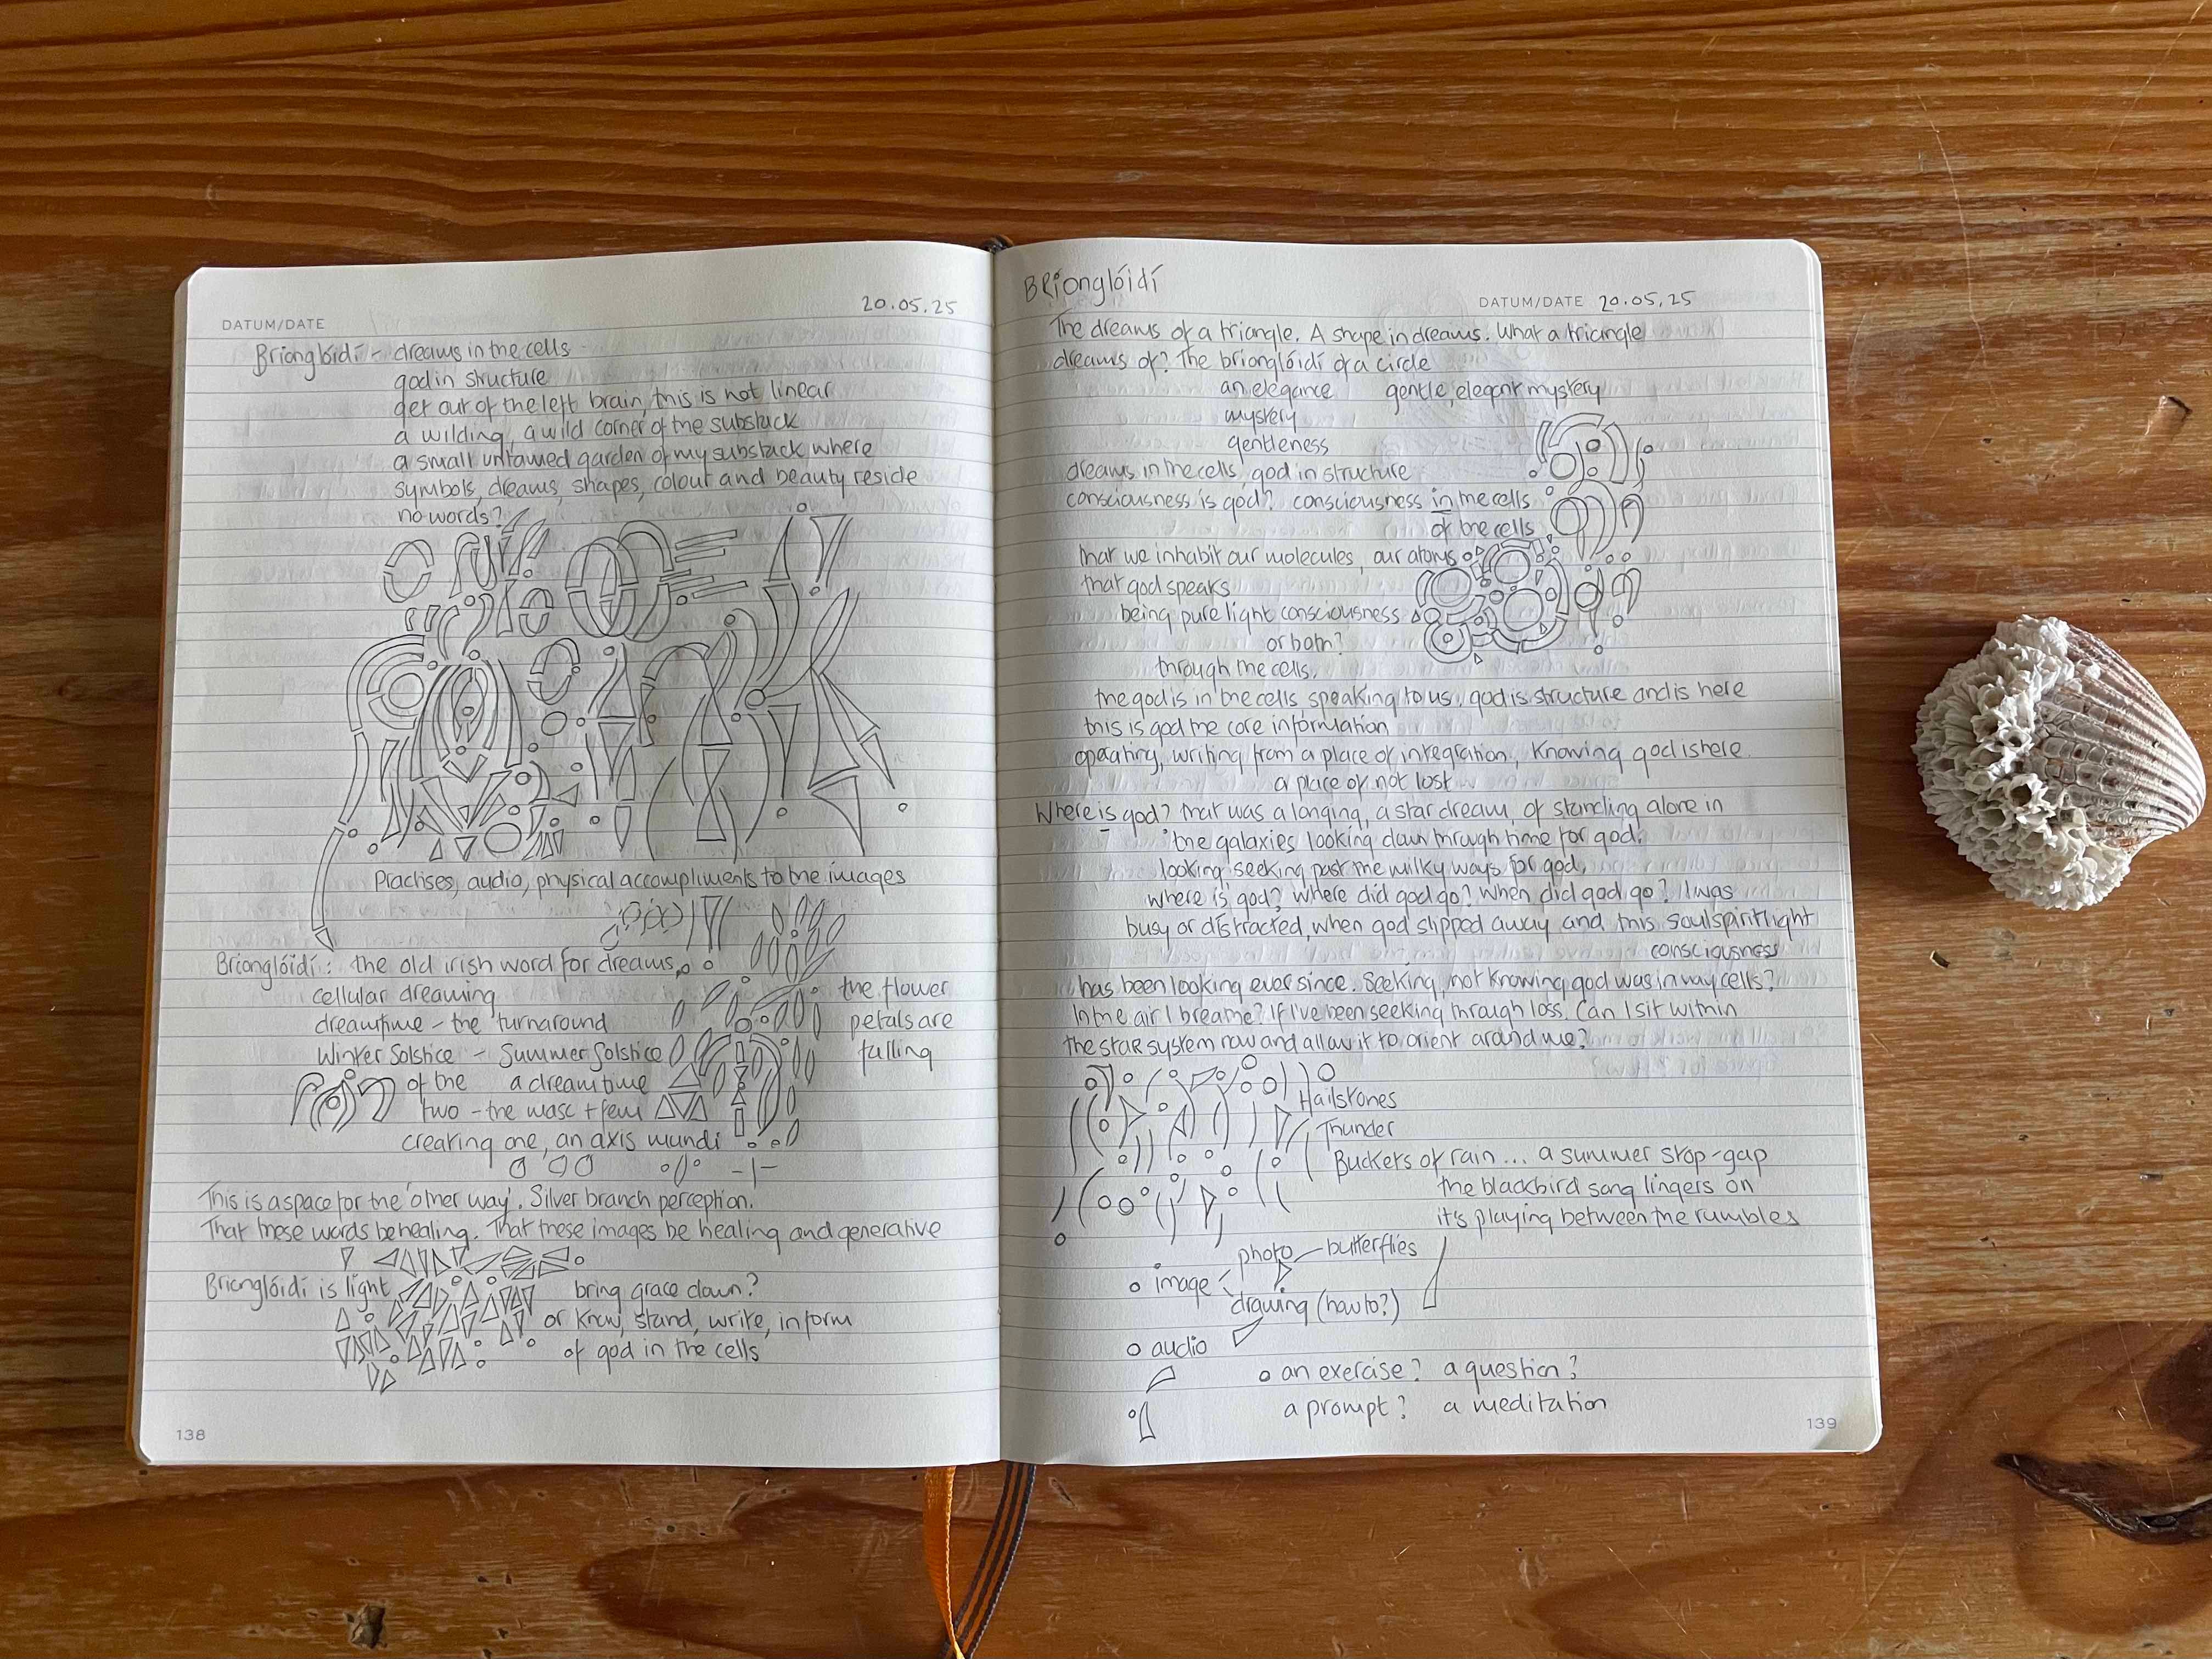 20.05.25
DATUM/DATE
Brionglóidí - dreams in the cells
god in structure
get out of the left brain, this is not linear
a wilding, a wild corner of the substack
a small untamed garden of my substack where
symbols, dreams, shapes, colour and beauty reside
no words?
Practises, audio, physical accompliments to the images
Brionglóidí: the old irish word for dreams
cellular dreaming
the flower
dreamtime - the turnaround
petals are
Winter Solstice - Summer Solstice
falling
of the a dreamtime
two - the masc + fem
creating one, an axis mundi
This is a space for the 'other way'. Silver branch perception.
That these words be healing. That these images be healing and generative
Brionglóidí is light
bring grace down?
or know, stand, write, inform
of god in the cells
138
BRionglóidí
DATUM/DATE 20.05.25
The dreams of a triangle. A shape in dreams. What a triangle
dreams of? The brionglóidí of a circle
an elegance gentle, elegant mystery
mystery
gentleness
dreams in the cells, god in structure
consciousness is god? consciousness in the cells
of the cells
that we inhabit our molecules, our atoms
that god speaks
being pure light consciousness
or both?
through the cells,
the god is in the cells speaking to us, god is structure and is here
this is god the core information
operating, writing from a place of integration, knowing god is here.
a place of not lost
Where is god? that was a longing, a star dream, of standing alone in
the galaxies looking down through time for god.
looking, seeking past the milky ways for god,
where is god? where did god go? When did god go? I was
busy or distracted, when god slipped away and this soulspiritlight
consciousness
has been looking ever since. Seeking, not knowing god was in my cells?
In the air I breathe? If I've been seeking through loss. Can I sit within
the star system now and allow it to orient around me?
Hailstones
Thunder
Buckets of rain... a summer stop-gap
the blackbird song lingers on
it's playing between the rumbles
photo - butterflies
image
drawing (how to?)
audio
an exercise? a question?
a prompt? a meditation
139